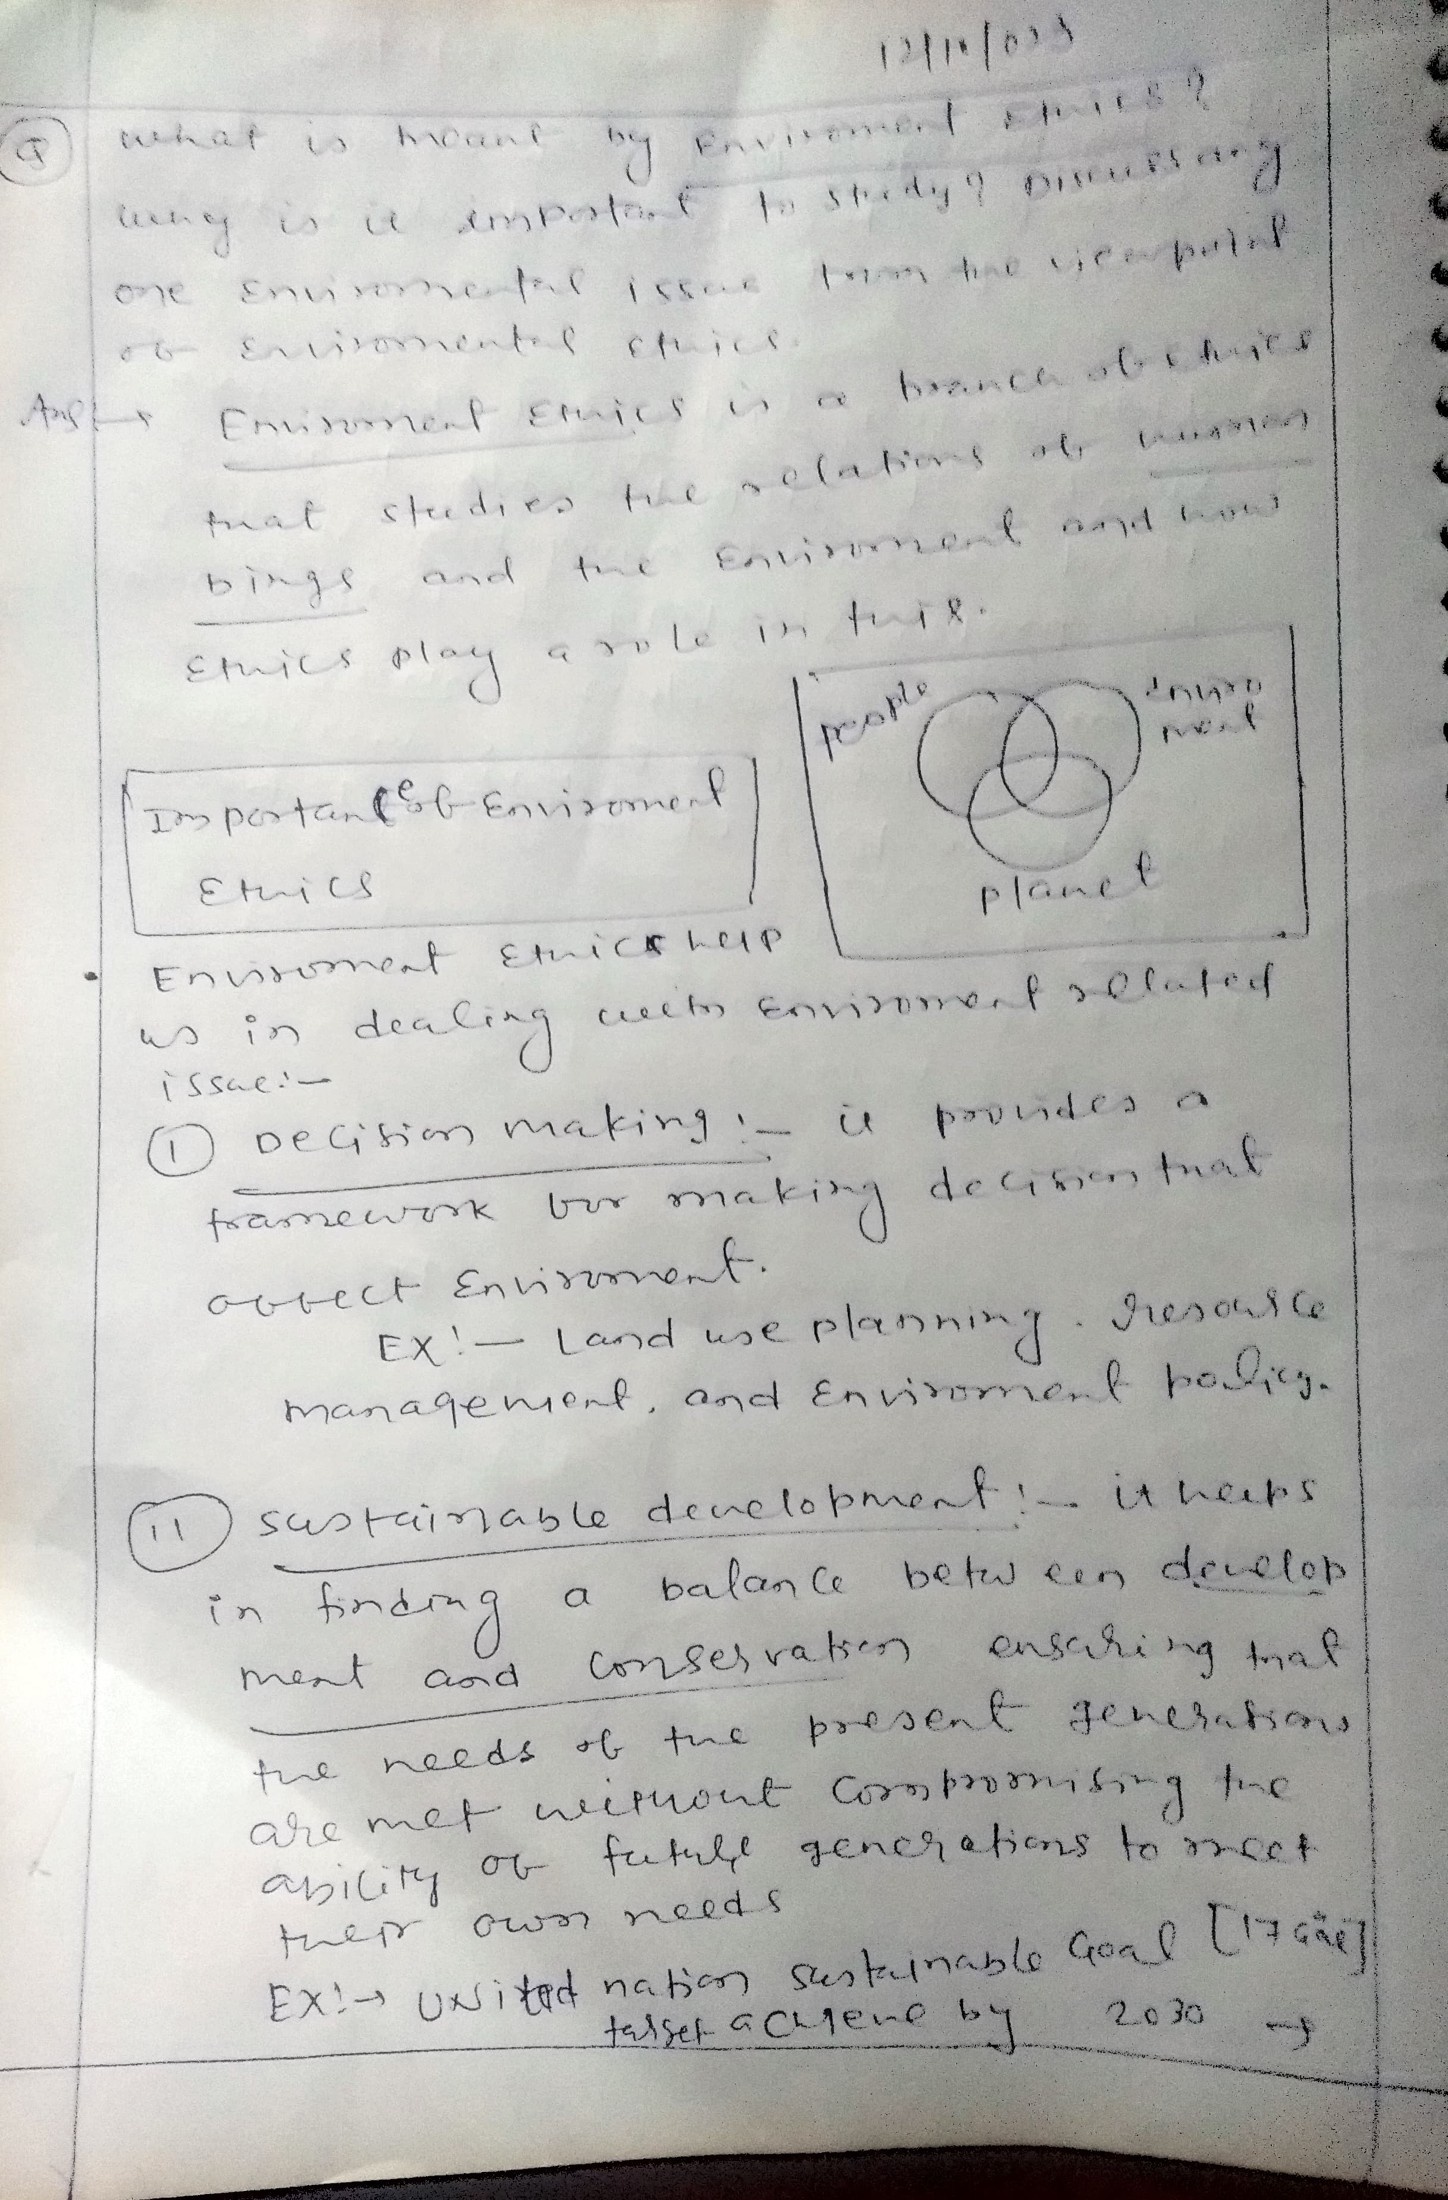 Q what is meant by Enviroment Ethics?
why is it important to study? Discussing
one Enviromental issue from the viewpoint
of Enviromental ethics.
Ans:→ Enviroment Ethics is a branch of ethics
that studies the relations of human
bings and the Enviroment and how
Ethics play a role in this.
people
Enviro
ment
planet
Importance of Enviroment
Ethics
• Enviroment Ethics help
us in dealing with Enviroment related
issue:-
I Decision making:- it provides a
framework for making decision that
affect Enviroment.
EX:- Land use planning. resource
management, and Enviroment policy.
II sustainable development:- it helps
in finding a balance between develop
ment and conservation ensuring that
the needs of the present generations
are met without compromising the
ability of future generations to meet
their own needs
EX:→ UNited nation sustainable Goal [17
target achieve by 2030 →